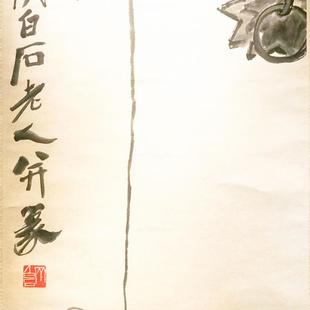 白石老人并篆